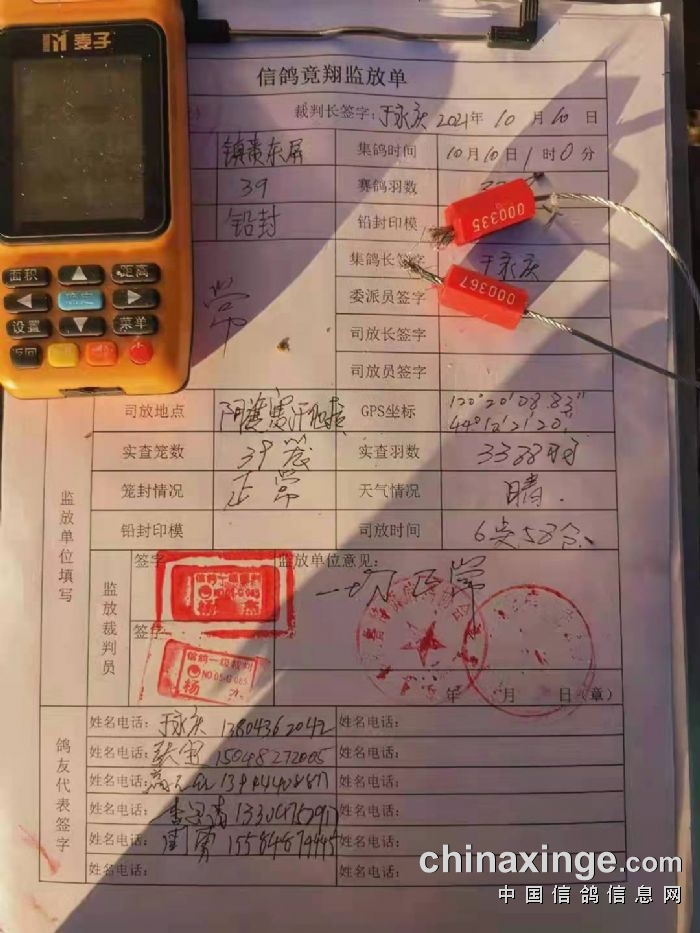 麦子
信鸽竟翔监放单
裁判长签字: 于永庆 2021年 10月 10日
集鸽时间 10月10日1时0分
39 赛鸽羽数
铅封 铅封印模
000335
集鸽长签字 于永庆
000367
委派员签字
常
司放长签字
司放员签字
面积 距离
确定
设置 菜单
返回
司放地点 GPS坐标 120°20′08.83″
44°12′21.20
实查笼数 39笼 实查羽数 3388羽
笼封情况 正常 天气情况 晴.
铅封印模 司放时间 6点58分
监放单位填写
监放裁判员
签字 监放单位意见: 一切正常
签字
信鸽一级裁判
杨
年 月 日(章)
鸽友代表签字
姓名电话: 于永庆 13804362042 姓名电话:
姓名电话: 15048272005 姓名电话:
姓名电话: 姓名电话:
姓名电话: 姓名电话:
姓名电话: 姓名电话:
姓名电话: 姓名电话:
chinaxinge.com
中国信鸽信息网